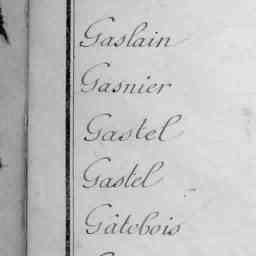 Gaslain
Gasnier
Gastel
Gastel
Gâtebois